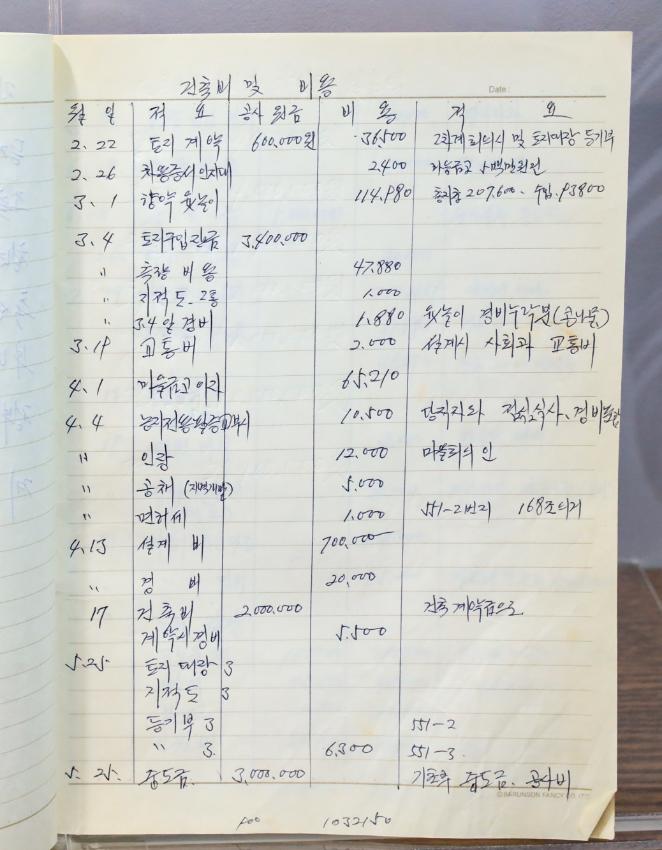 건축비 및 비용
Date :
월 일 적 요 공사원금 비 용 적 요
2. 22 토리 계약 600.000원 36,500 및 토지대장 등기부
2. 26 차용증서 인지대 2.400 마을금고
3. 1 향약 윷놀이 114.980 총지출 207,600. 수입. 93800
3. 4 토지구입잔금 3.400.000
〃 측량 비용 47.880
〃 지적도 2통 1.000
〃 3.4일 경비 1.880 윷놀이 경비누락분(콩나물)
3. 19 교통비 2.000 설계시 사회과 교통비
4. 1 마을금고이자 65,210
4. 4 농지전용필증교부시 10.500 당직자와 점심식사.
〃 인장 12.000 마을회의 인
〃 공채 (지역개발) 5.000
〃 면허세 1.000 551-2번지 168조의거
4. 13 설계 비 700,000
〃 경 비 20,000
17 건축비 2.000.000 건축계약금으로
계약시경비 5.500
5. 25. 토지대장 3
지적도 3
등기부 3 551-2
〃 3. 6,300 551-3.
5. 25. 중도금 3,000.000 중도금. 공사비
© BARUNSON FANCY CO.,LTD.
1032150